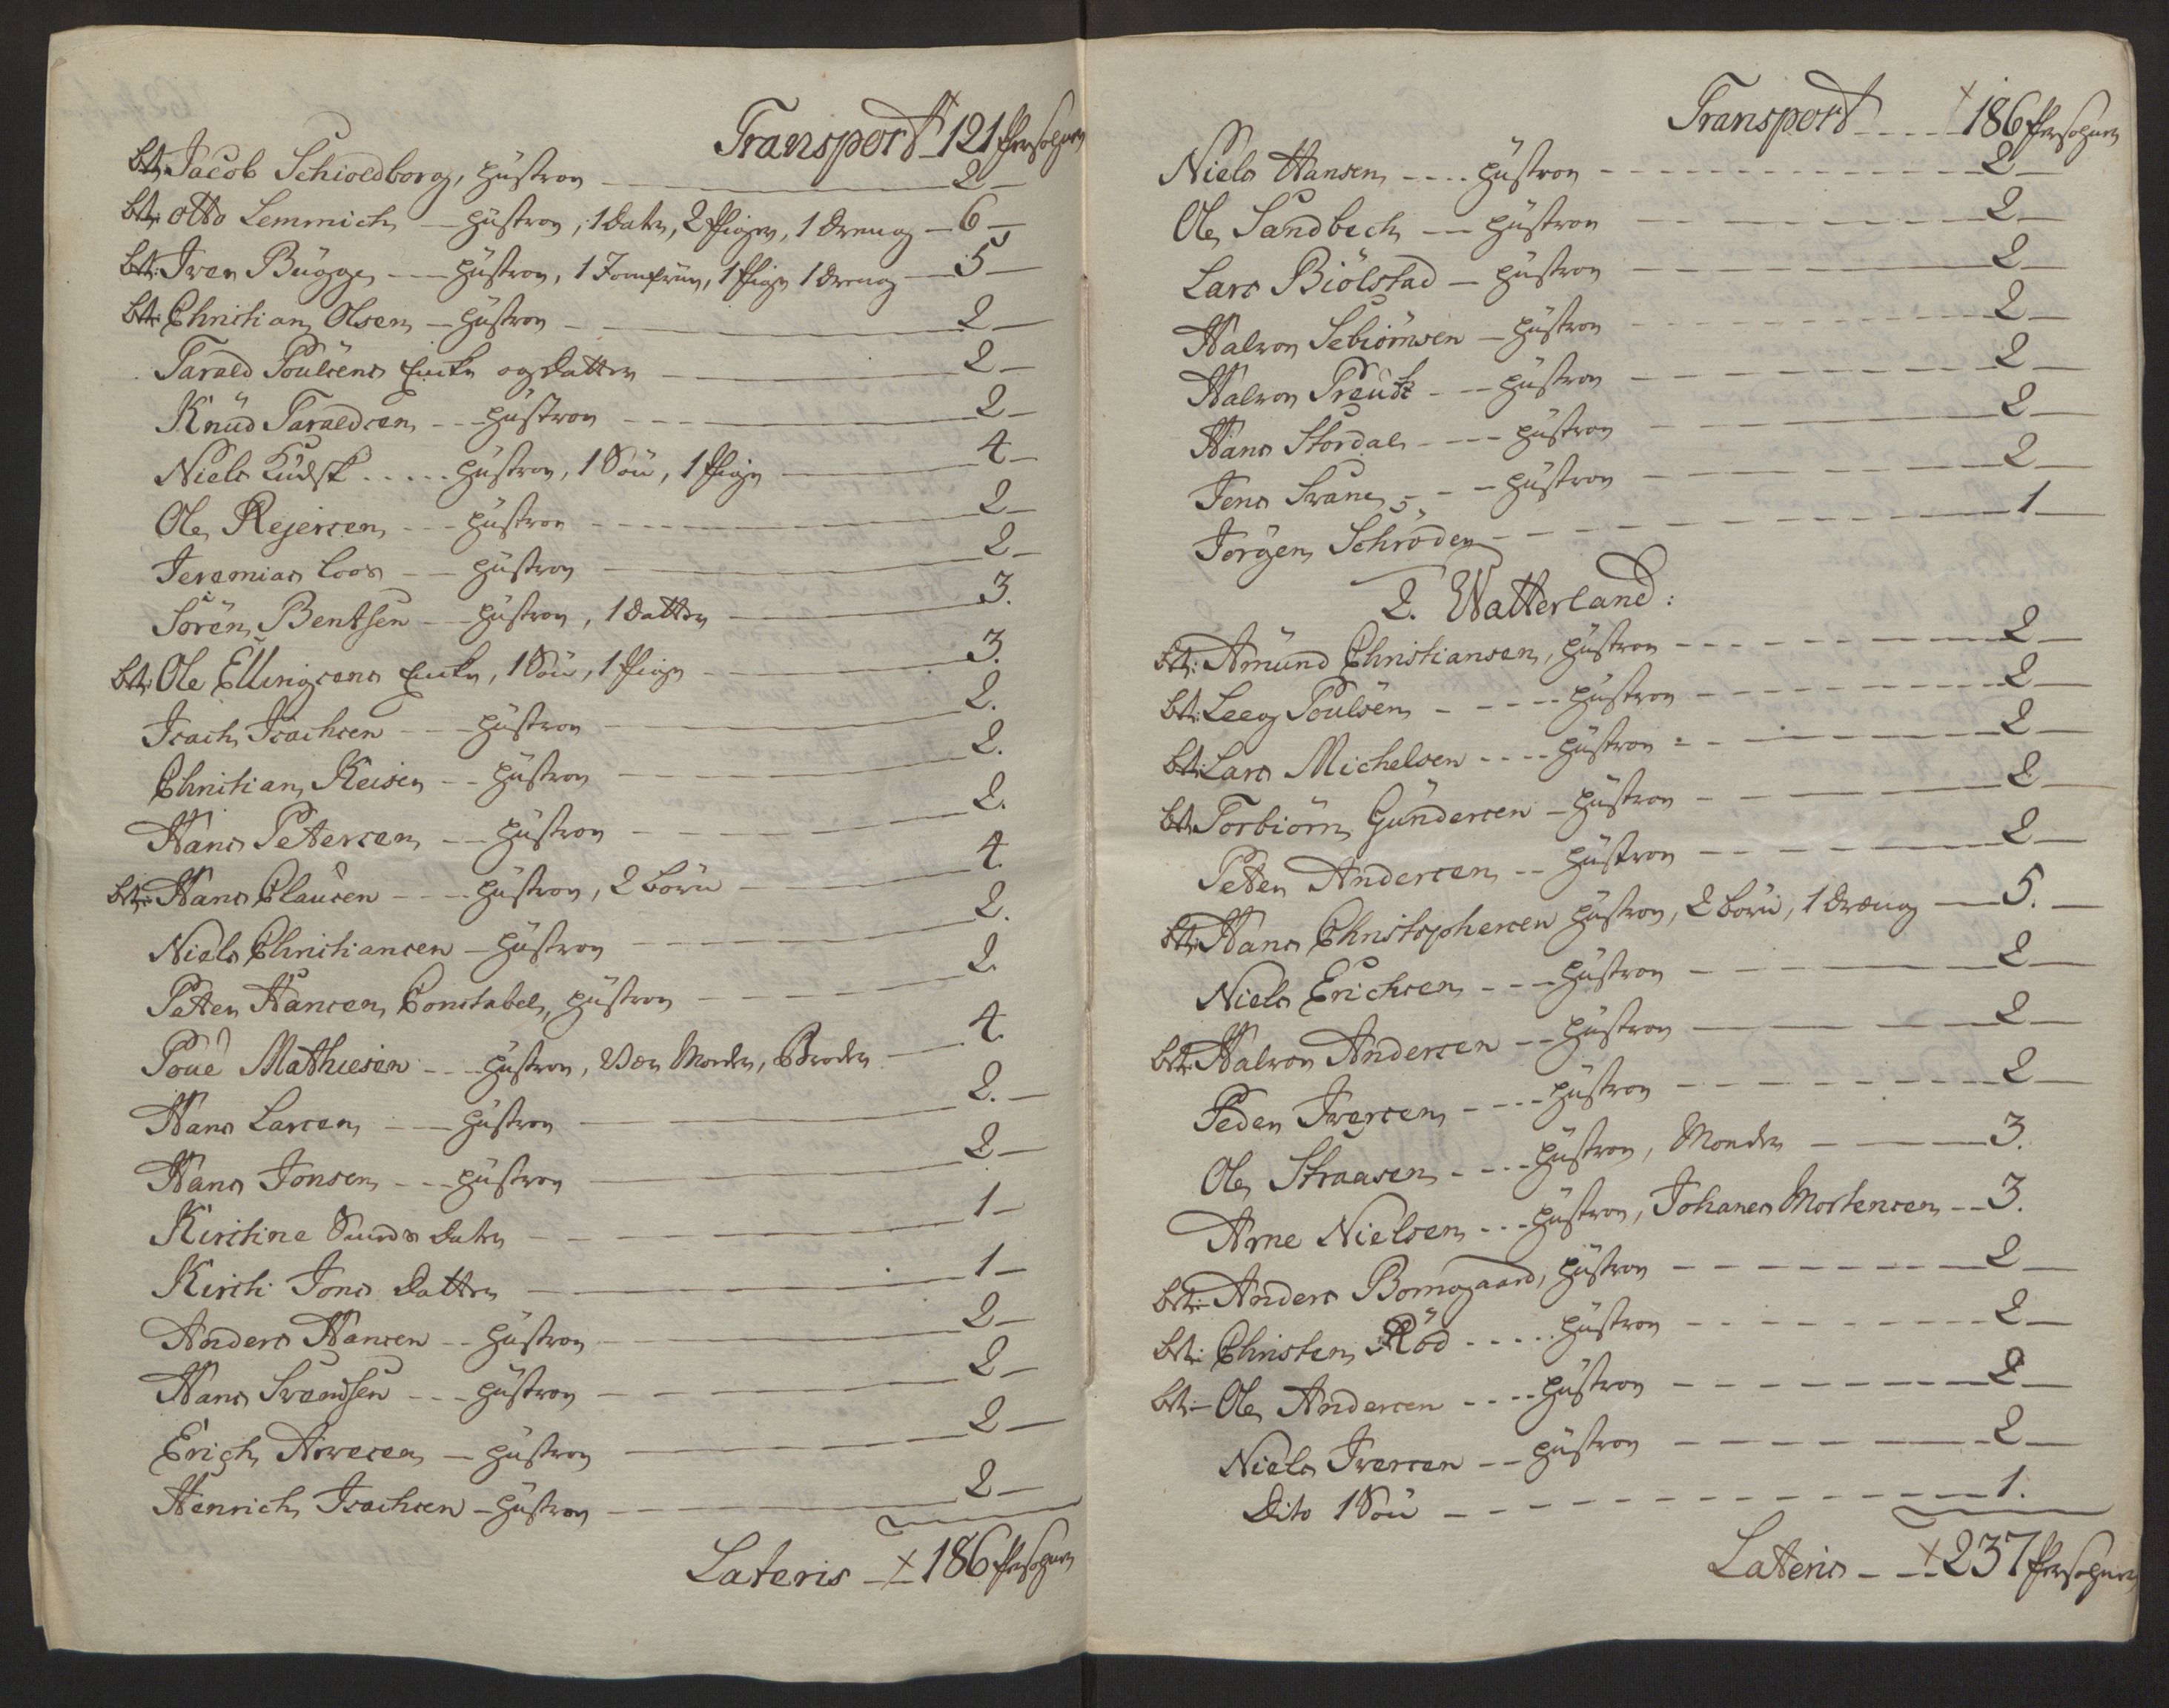 Transport 121 Persohner
bt: Jacob Schioldborg, hustron 2
bt: Otto Lemmich hustron, 1 datr, 2 Piger, 1 dreng 6
bt: Iver Bügge hustron, 1 Jomfrue, 1 Pige 1 dreng 5
bt: Christian Olsen hustron 2
Tarald Poulsens Encke og datter 2
Knüd Taraldsen hustron 2
Niels Kudsk hustron, 1 Sön, 1 Pige 4
Ole Rejersen hustron 2
Jeremias Loos hustron 2
Sören Bentsen hustron, 1 datter 3.
bt: Ole Ellingsens Encke, 1 Sön, 1 Pige 3.
Isach Isachsen hustron 2.
Christian Keiser hustron 2.
Hans Petersen hustron 2.
bt: Hans Clausen hustron, 2 börn 4.
Niels Christiansen hustron 2.
Peter Hansen Constabel, hustron 2.
Poul Mathiesen hustron, Moder, Broder 4.
Hans Larsen hustron 2.
Hans Jonsen hustron 2
Kirstine datr 1
Kirsti Jons datter 1
Anders Hansen hustron 2
Hans Svendsen hustron 2
Erich Arvesen hustron 2
Henrich Isachsen hustron 2
Lateris 186 Persohner
Transport 186 Persohner
Niels Hansen hustron 2
Ole Sandbech hustron 2
Lars Biölstad hustron 2
Halvor Sebiörnsen hustron 2
Halvor Preütz hustron 2
Hans Stordal hustron 2
Jens Svane hustron 2
Jörgen Schröder 1
2. Watterland:
bt: Amünd Christiansen, hustron 2
bt: Leeg Poulsen hustron 2
bt: Lars Michelsen hustron 2
bt: Torbiörn Gündersen hustron 2
Peter Andersen hustron 2
bt: Hans Christophersen hustron, 2 börn, 1 dræng 5.
Niels Erichsen hustron 2
bt: Halvor Andersen hustron 2
Peder Iversen hustron 2
Ole Straasen hustron, Moder 3.
Arne Nielsen hustron, Johanes Mortensen 3.
bt: Anders Bomgaard, hustron 2
bt: Christen Röd hustron 2
bt: Ole Andersen hustron 2
Niels Iversen hustron 2
Dito 1 Sön 1.
Lateris 237 Persohner